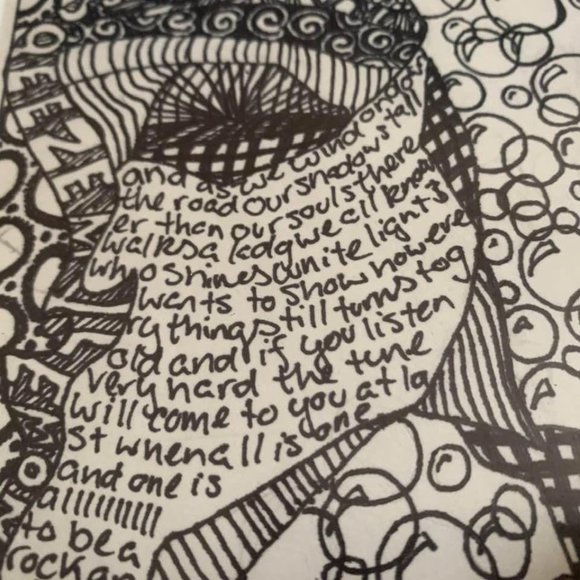 and as we wind on down
the road our shadows tall
er than our souls there
walks a lady we all know
who shines white light &
wants to show how eve
ry things till turns to g
old and if you listen
very hard the tune
will come to you at la
st when all is one
and one is
allllllllll
to be a
rock an